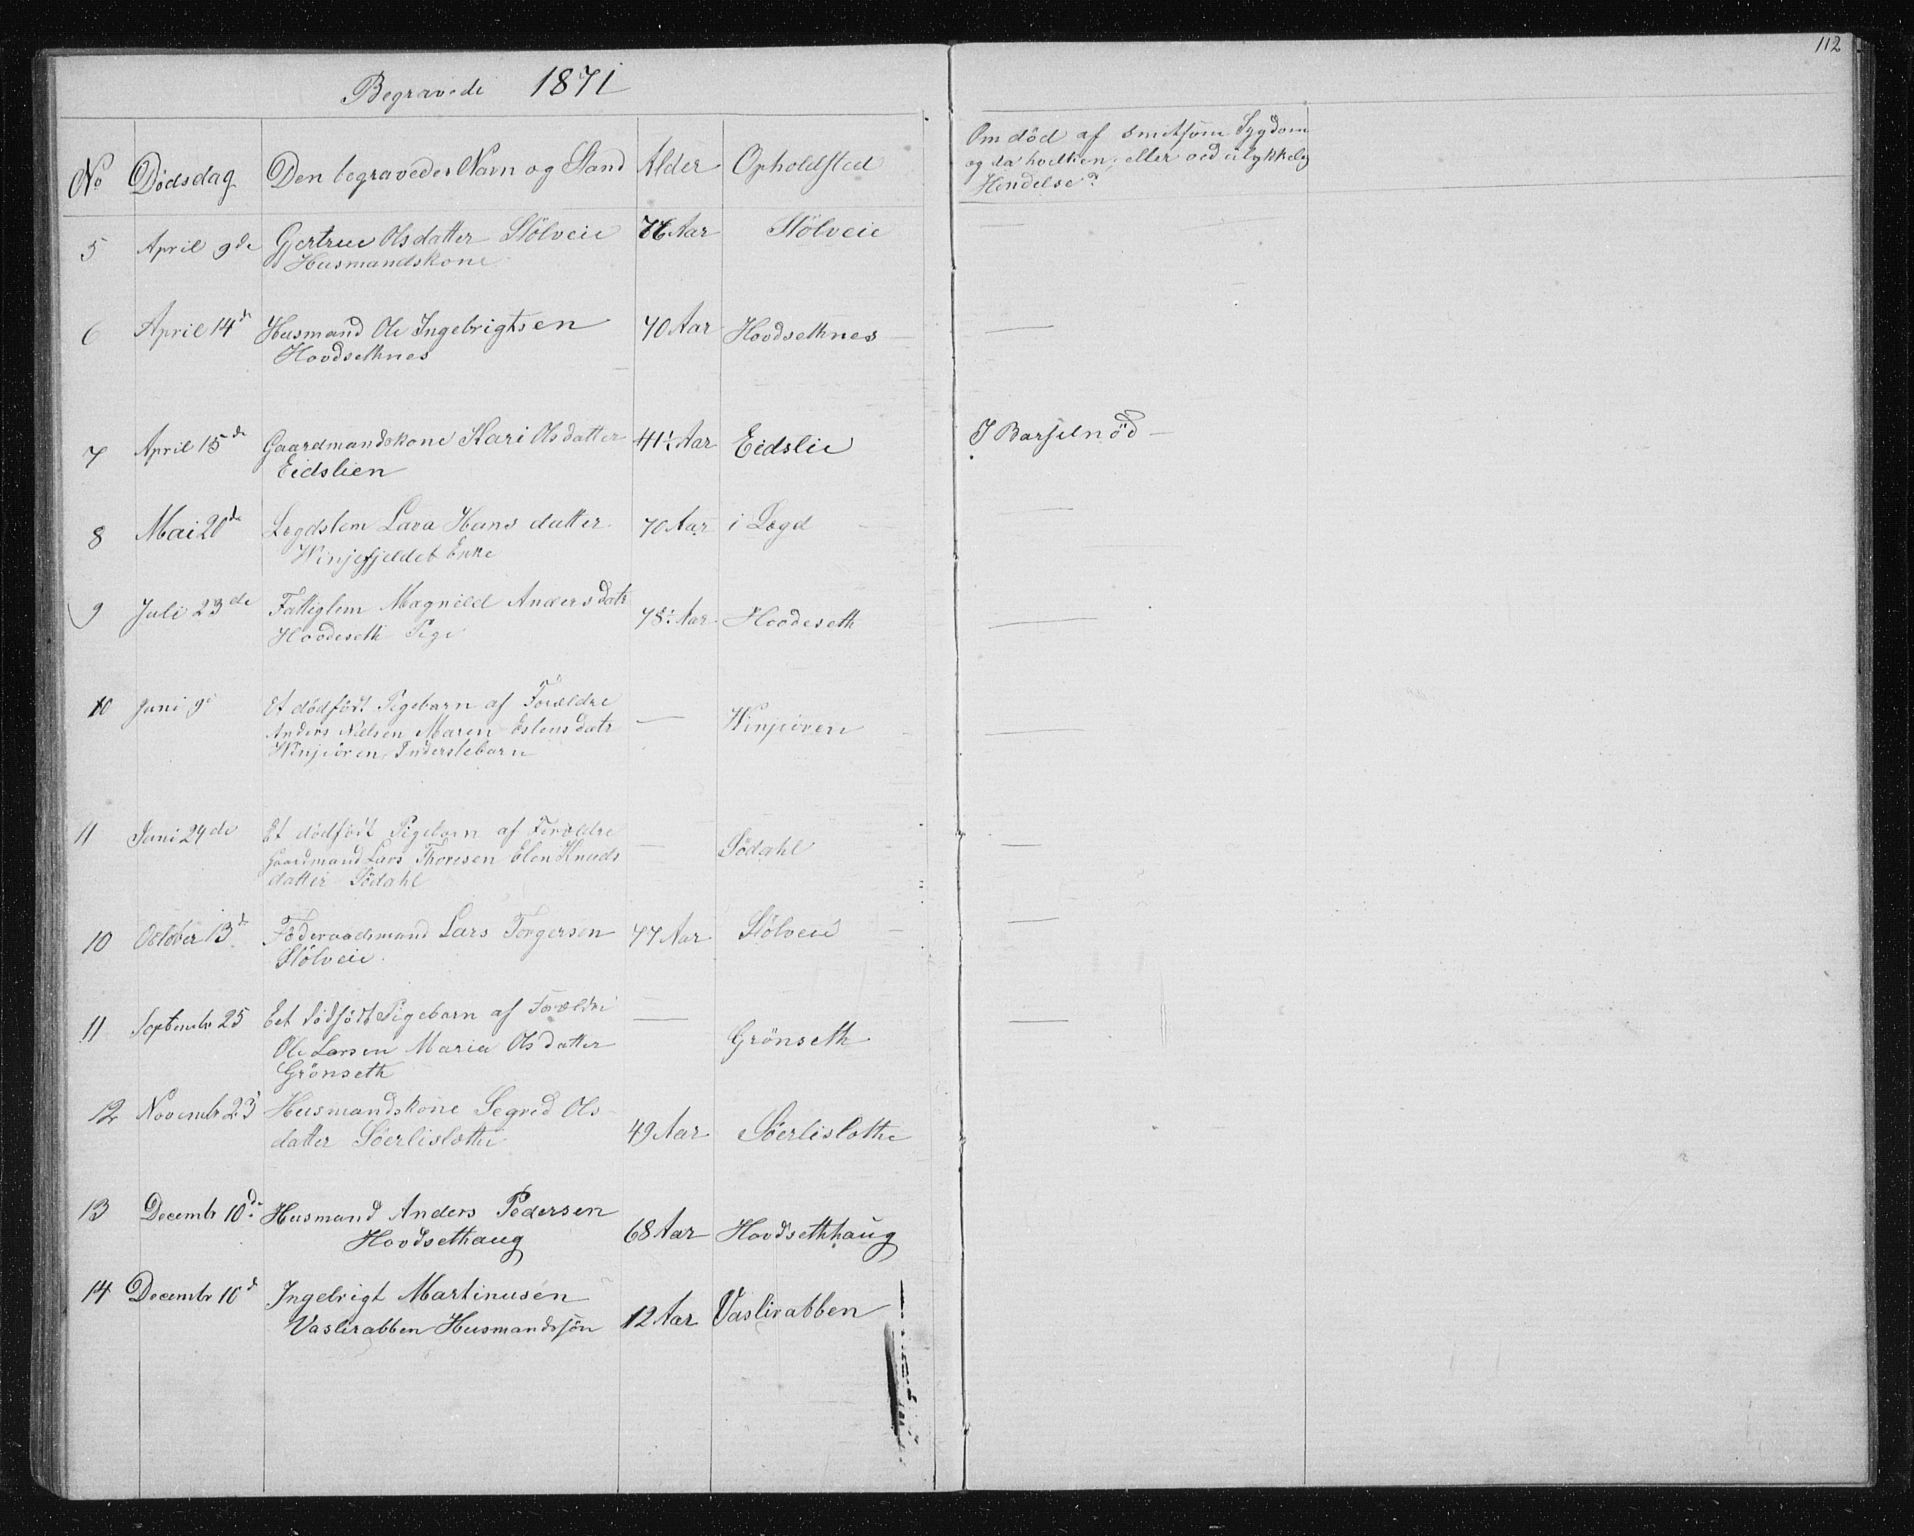 112
Begravede 1871
No Dödsdag Den begravedes Navn og Stand Alder Opholdsted Om död af smitsom Sygdom
og da hvilken, eller ved ulykkelig
Hendelse?
5 April 9de Gjertrue Olsdatter Stölveie 76 Aar Stölveie —
Husmandskone
6 April 14de Husmand Ole Ingebrigtsen 70 Aar Hovdsethnes —
Hovdsethnes
7 April 15de Gaardmandskone Kari Olsdatter 41 Aar Eidslie I Barselnöd —
Eidslien
8 Mai 20de Lægdslem Hans datter 70 Aar i Lægd —
Winjefjeldet Enke
9 Juli 23de Fattiglem Magnild Andersdatr 78 Aar Hovdeseth —
Hovdeseth Pige
10 Juni 9de Et dödfödt Pigebarn af Forældre — Winjeören —
Anders Nielsen Maren Estensdatr
Winjeören, Inderstebarn
11 Juni 24de Et dödfödt Pigebarn af Forældre — Södahl —
Gaardmand Lars Thoresen Elen Knuds
datter Södahl
10 October 13de Föderaadsmand Lars Torgersen 77 Aar Stölveie —
Stölveie
11 Septembr 25 Eet dödfödt Pigebarn af Forældre — Grönseth —
Ole Larsen Maria Olsdatter
Grönseth
12 Novembr 23 Husmandskone Segred Ols
datter Söerlislothe 49 Aar Söerlislothe
13 Decembr 10de Husmand Anders Pedersen 68 Aar Hovdsethhaug
Hovdsethaug
14 Decembr 10d Ingebrigt Martinusen 12 Aar Vaslirabben
Vaslirabben Husmandssön